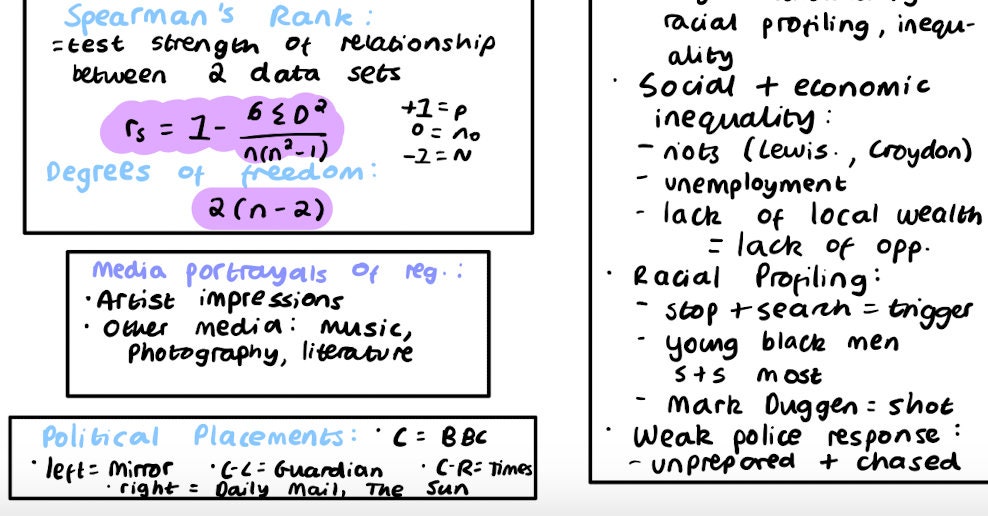 Spearman's Rank:
=test strength of relationship
between 2 data sets
rs = 1- 6 Σ D²
n(n²-1)
+1 = p
0 = no
-1 = N
Degrees of freedom:
2(n-2)
Media portrayals of reg.:
· Artist impressions
· Other media: music,
photography, literature
Political Placements: · C = BBC
· left = Mirror · C-L = Guardian · C-R = Times
· right = Daily Mail, The Sun
racial profiling, inequ-
ality
· Social + economic
inequality:
- riots (Lewis., Croydon)
- unemployment
- lack of local wealth
= lack of opp.
· Racial Profiling:
- stop + search = trigger
- young black men
s+s most
- Mark Duggen = shot
· Weak police response:
- unprepared + chased